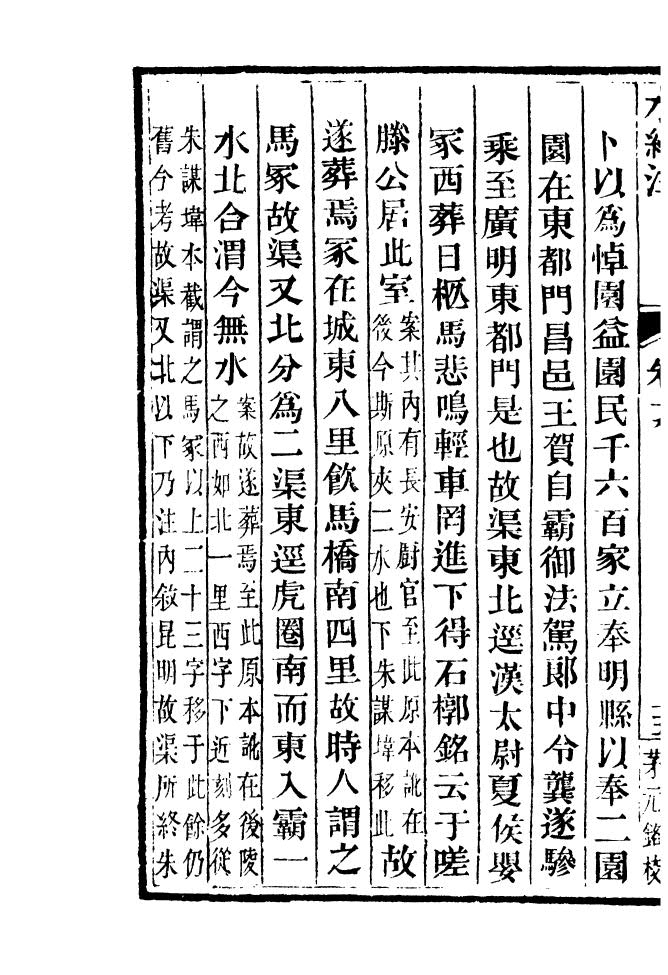 水經注 卷十 三 茅元銘校
卜以為悼園益園民千六百家立奉明縣以奉二園
園在東都門昌邑王賀自霸御法駕郎中令龔遂驂
乘至廣明東都門是也故渠東北逕漢太尉夏侯嬰
冢西葬日柩馬悲鳴輕車罔進下得石槨銘云于嗟
滕公居此室案其內有長安廚官至此原本訛在後今斯原夾二水也下朱謀㙔移此故
遂葬焉冢在城東八里飲馬橋南四里故時人謂之
馬冢故渠又北分為二渠東逕虎圈南而東入霸一
水北合渭今無水案故遂葬焉至此原本訛在後陵之西如北一里西字下近刻多從
朱謀㙔本截謂之馬冢以上二十三字移于此餘仍
舊今考故渠又北以下乃注內敘昆明故渠所終朱